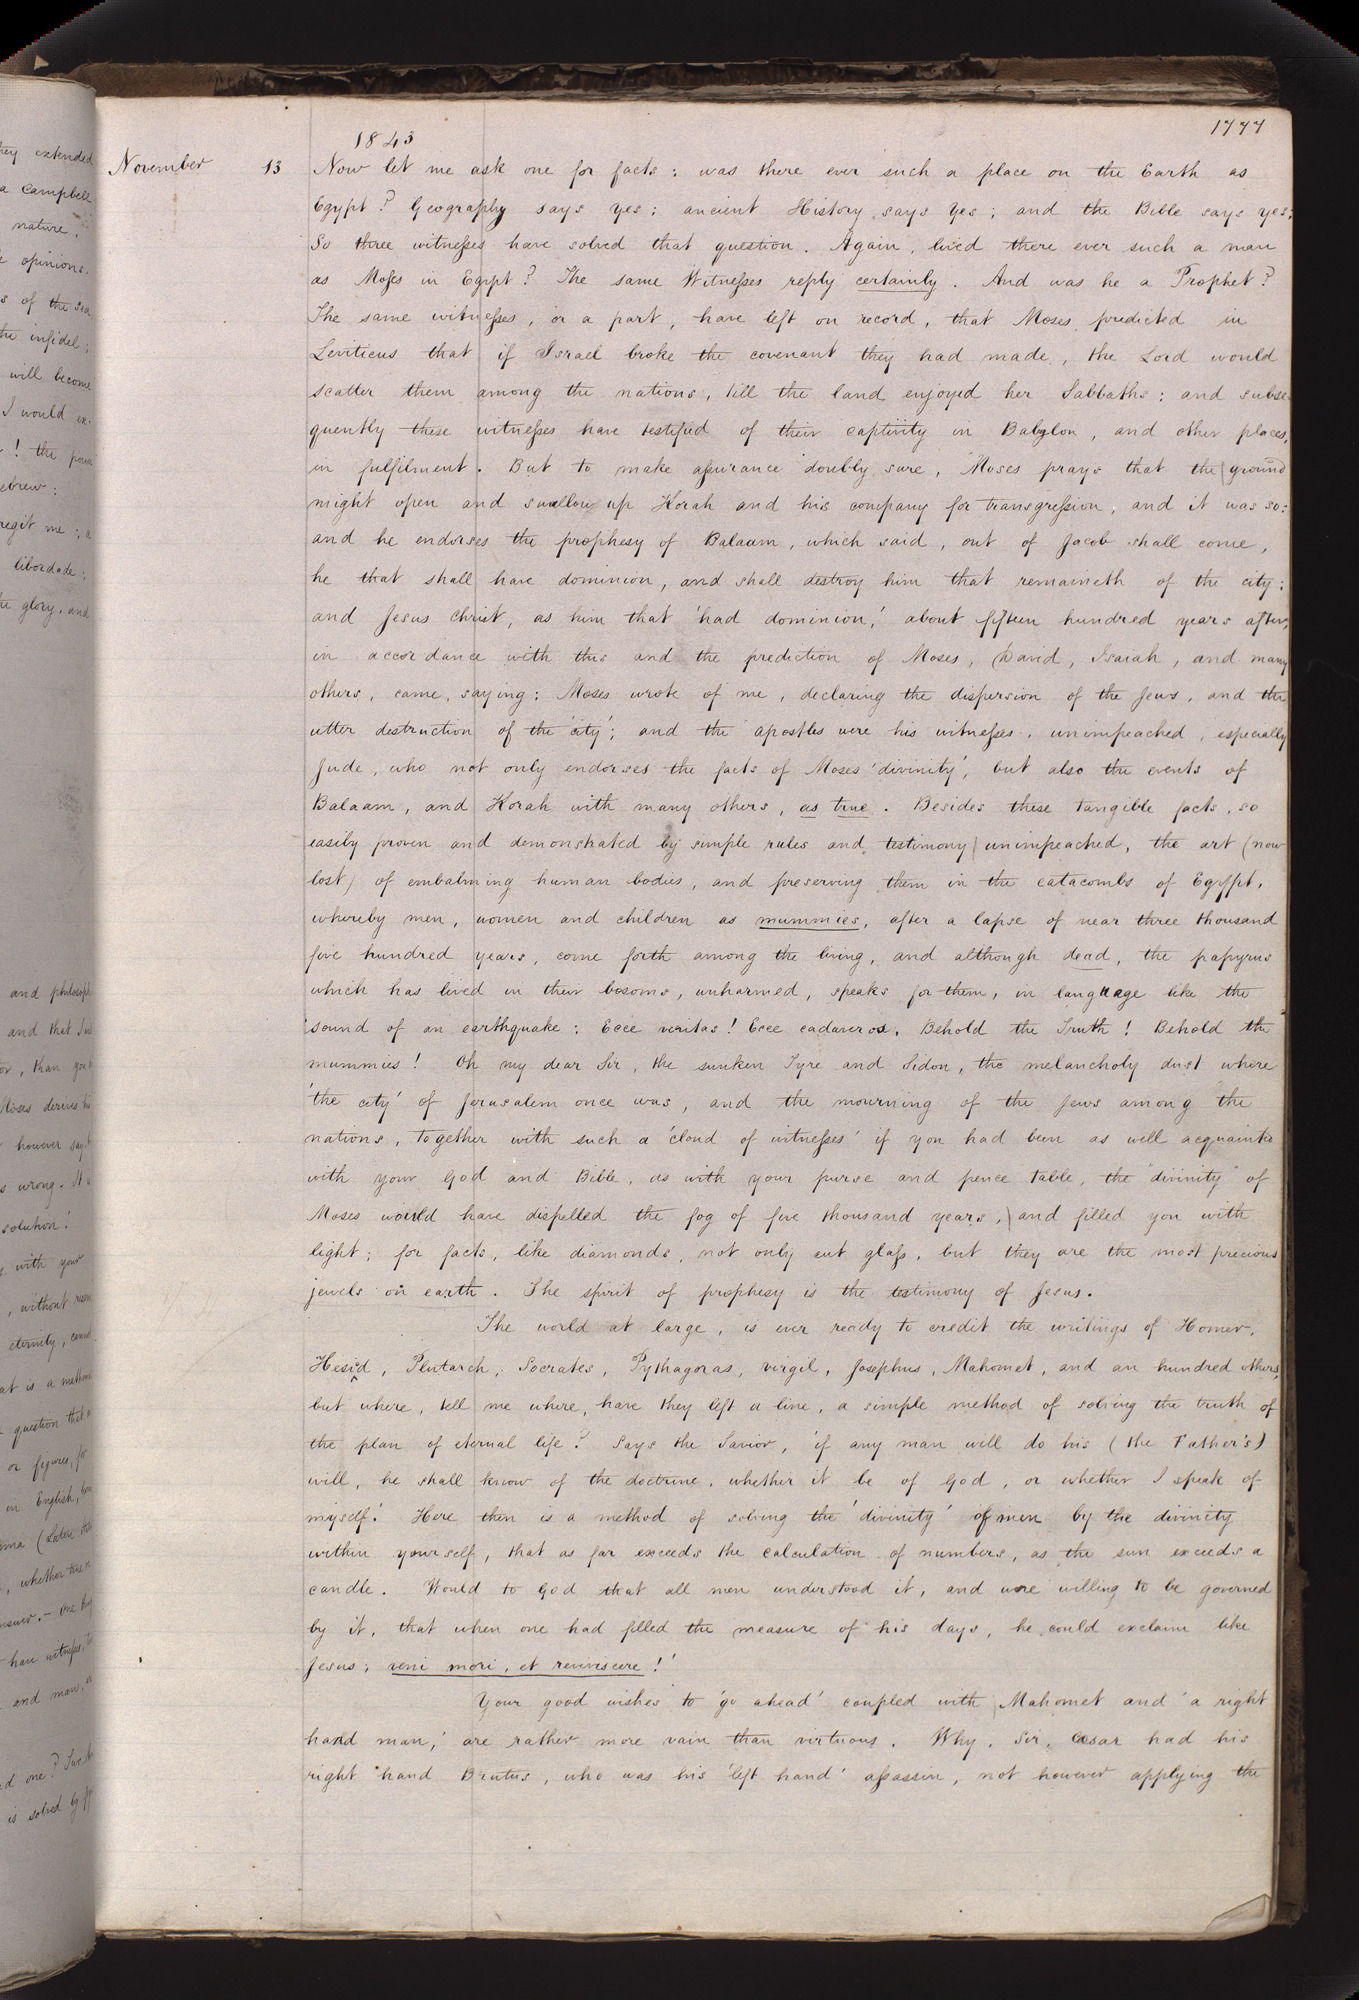 1777
1843
November 13 Now let me ask one for facts: was there ever such a place on the Earth as
Egypt? Geography says yes; ancient History says yes; and the Bible says yes;
So three witnesses have solved that question. Again, lived there ever such a man
as Moses in Egypt? The same Witnesses reply certainly. And was he a Prophet?
The same witnesses, or a part, have left on record, that Moses predicted in
Leviticus that if Israel broke the covenant they had made, the Lord would
scatter them among the nations, till the land enjoyed her Sabbaths: and subse-
quently these witnesses have testified of their captivity in Babylon, and other places,
in fulfilment. But to make assurance doubly sure, Moses prays that the ground
might open and swallow up Korah and his company for transgression, and it was so:
and he endorses the prophesy of Balaam, which said, out of Jacob shall come,
he that shall have dominion, and shall destroy him that remaineth of the city:
and Jesus Christ, as him that 'had dominion,' about fifteen hundred years after,
in accordance with this and the prediction of Moses, David, Isaiah, and many
others, came, saying: Moses wrote of me, declaring the dispersion of the Jews, and the
utter destruction of the 'city'; and the apostles were his witnesses, unimpeached, especially
Jude, who not only endorses the facts of Moses 'divinity', but also the events of
Balaam, and Korah with many others, as true. Besides these tangible facts, so
easily proven and demonstrated by simple rules and testimony unimpeached, the art (now
lost) of embalming human bodies, and preserving them in the catacombs of Egypt,
whereby men, women and children as mummies, after a lapse of near three thousand
five hundred years, come forth among the living, and although dead, the papyrus
which has lived in their bosoms, unharmed, speaks for them, in language like the
sound of an earthquake: Ecce veritas! Ecce cadaveros. Behold the Truth! Behold the
mummies! Oh my dear Sir, the sunken Tyre and Sidon, the melancholy dust where
'the city' of Jerusalem once was, and the mourning of the Jews among the
nations, together with such a 'cloud of witnesses' if you had been as well acquainted
with your God and Bible, as with your purse and pence table, the "divinity" of
Moses would have dispelled the fog of five thousand years, and filled you with
light; for facts, like diamonds, not only cut glass, but they are the most precious
jewels on earth. The spirit of prophesy is the testimony of Jesus.
The world at large, is ever ready to credit the writings of Homer,
Hesid, Plutarch, Socrates, Pythagoras, Virgil, Josephus, Mahomet, and an hundred others,
but where, tell me where, have they left a line, a simple method of solving the truth of
the plan of eternal life? Says the Savior, 'if any man will do his (the Father's)
will, he shall know of the doctrine, whether it be of God, or whether I speak of
myself.' Here then is a method of solving the 'divinity' of men by the divinity
within yourself, that as far exceeds the calculation of numbers, as the sun exceeds a
candle. Would to God that all men understood it, and were willing to be governed
by it, that when one had filled the measure of his days, he could exclaim like
Jesus; veni mori, et reviviscere!'
Your good wishes to 'go ahead' coupled with Mahomet and 'a right
hand man,' are rather more vain than virtuous. Why, Sir, Cesar had his
right hand Brutus, who was his 'left hand' assassin, not however applying the